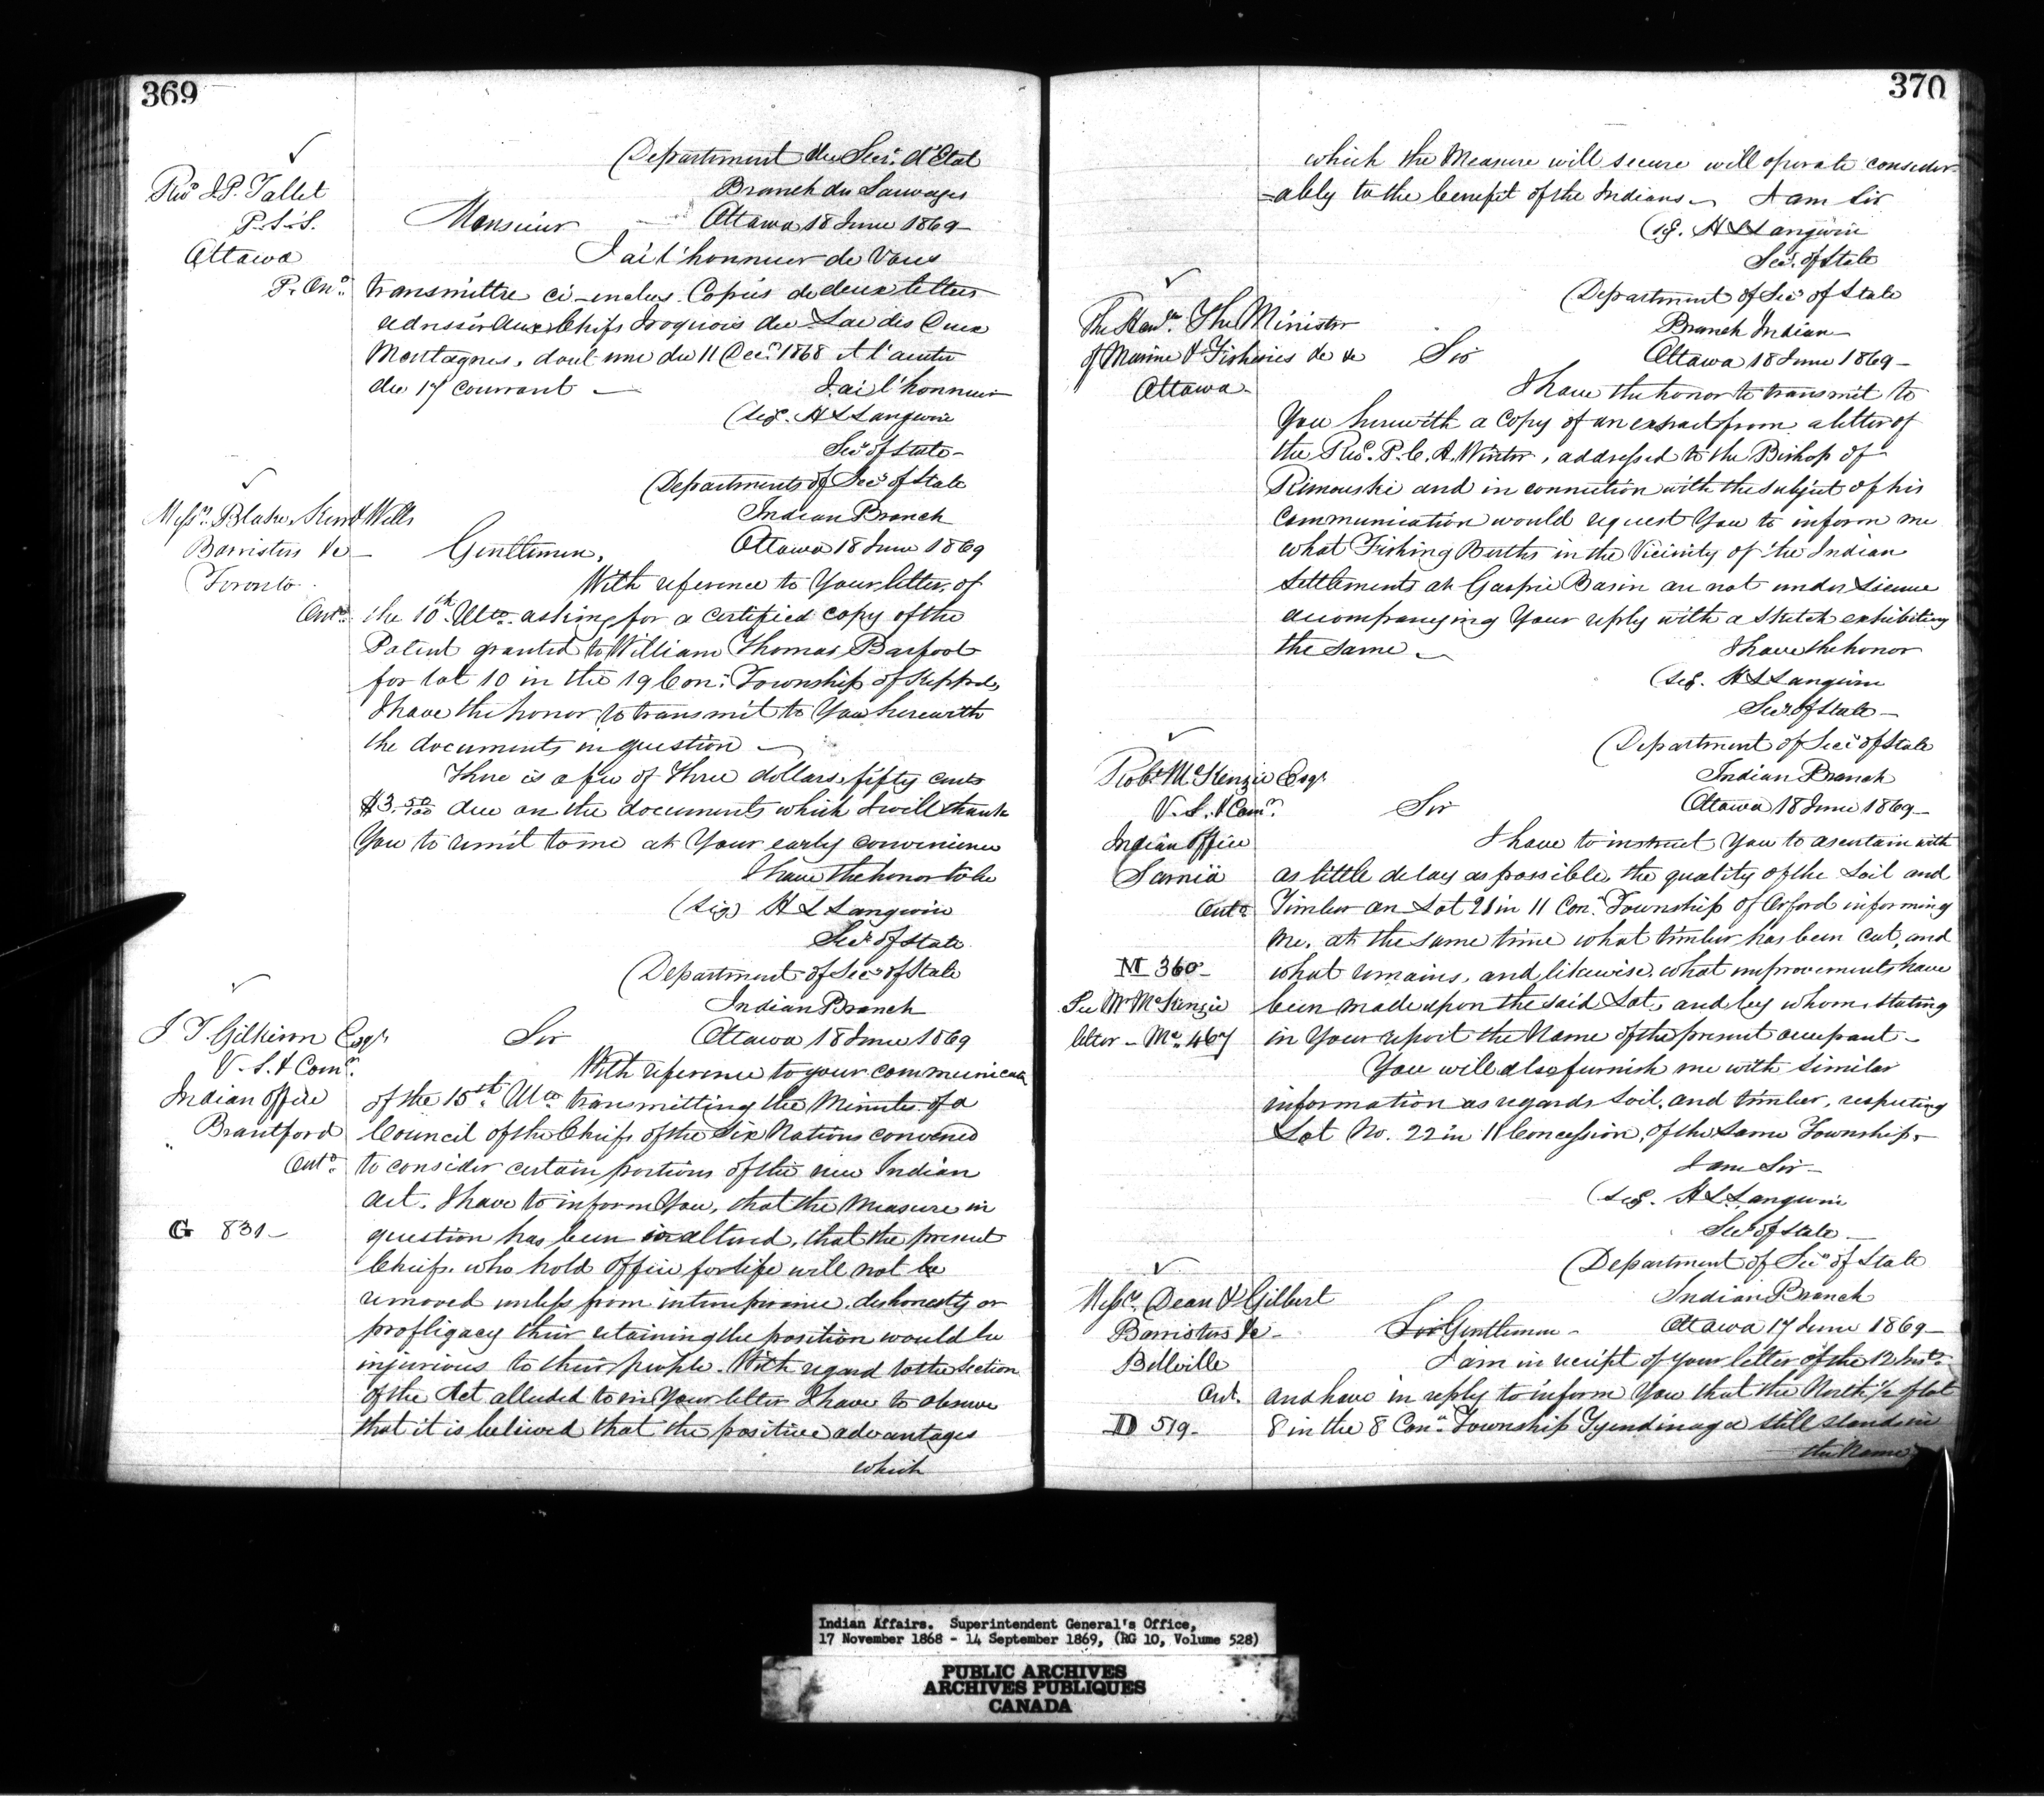 369
✓
Rev^d J.P. Tallet
P.S.S.
Ottawa
P. On^o.
Department du Secr. d'Etat
Branch du Sauvages
Monsieur — Ottawa 18 June 1869 —
J'ai l'honneur de Vous
transmittre ci-inclus Copies de deux letters
adressés aux Chifs Iroquois du Lac des Deux
Montagnes, dont une du 11 Dec^r. 1868 et l'autre
du 17 courrant —
J'ai l'honneur
(sig. H L Langevin
Sec^r of State —
✓
Mess^rs. Blake, Kerr & Wells
Barristers &c —
Toronto
Ont^o.
Departments of Sec^r of State
Indian Branch
Gentlemen, Ottawa 18 June 1869
With reference to Your letter, of
the 10^th. Ulto. asking for a certified copy of the
Patent granted to William Thomas Barfoot
for lot 10 in the 19 Con: Township of Keppel,
I have the honor to transmit to You herewith
the documents in question —
There is a fee of Three dollars, fifty cents
$3. 50/100 due on the documents which I will thank
You to remit to me at Your early convenience
I have the honor to be
(sig) H L Langevin
Sec^r of State
✓
J. T. Gilkison Esq^r.
V. S. & Com^r.
Indian Office
Brantford
Ont^o.
G 831 —
Department of Sec^r of State
Indian Branch
Sir Ottawa 18 June 1869
With reference to your communicatn
of the 15^st. Ulto transmitting the Minutes of a
Council of the Chiefs of the Six Nations convened
to consider certain portions of the new Indian
Act. I have to inform You, that the Measure in
question has been so altered, that the present
Chiefs who hold office for life will not be
removed unless from intemperance, dishonesty or
profligacy their retaining the position would be
injurious to their people. With regard to the Section
of the Act alluded to in Your letter I have to observe
that it is believed that the positive advantages
which
370
which the Measure will secure will operate consider-
=ably to the benefit of the Indians — I am Sir
(sg. H L Langevin
Sec^r. of State
✓
The Hon^ble. The Minister
of Marine & Fisheries &c &c
Ottawa
Department of Sec^r of State
Branch Indian
Sir Ottawa 18 June 1869 —
I have the honor to transmit to
You herewith a Copy of an extract from a letter of
the Rev^d. P. C. A. Winter, addressed to the Bishop of
Rimouski and in connection with the subject of his
Communication would request You to inform me
what Fishing Berths in the Vicinity of the Indian
Settlements at Gaspie Basin are not under License
accompanying Your reply with a sketch exhibiting
the same —
I have the honor
(sig. H L Langevin
Sec^r. of State —
✓
Rob^t. McKenzie Esq^r
V. S. & Com^r.
Indian Office
Sarnia
Ont^o
M 360 —
See Mr McKenzie
letter — Mc. 467
Department of Sec^r of State
Indian Branch
Sir Ottawa 18 June 1869 —
I have to instruct You to ascertain with
as little delay as possible, the quality of the Soil and
Timber on Lot 21 in 11 Con: Township of Orford informing
me, at the same time what timber has been cut, and
what remains, and likewise, what improvements have
been made upon the said Lot, and by whom, stating
in Your report the Name of the present occupant —
You will also furnish me with similar
information as regards Soil, and timber, respecting
Lot No. 22 in 11 Concession, of the same Township —
I am Sir —
(sig. H L Langevin
Sec^r of State —
✓
Mess^rs. Dean & Gilbert
Barristers &c —
Bellville
Ont.
D 519 —
Department of Sec^r of State
Indian Branch
Sir Gentlemen — Ottawa 17 June 1869 —
I am in receipt of your letter of the 12 Inst.
and have in reply to inform You that the North ½ of lot
8 in the 8 Con: Township Tyendinaga still stands in
the Name
Indian Affairs. Superintendent General's Office,
17 November 1868 - 14 September 1869, (RG 10, Volume 528)
PUBLIC ARCHIVES
ARCHIVES PUBLIQUES
CANADA